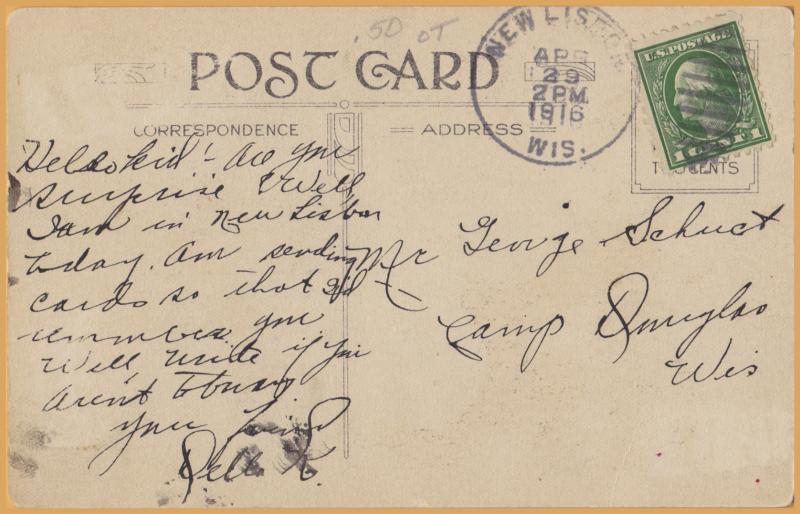 .50 OT
NEW LISBON
APR
29
2 PM
1916
WIS.
U.S. POSTAGE
1 CENT 1
TWO CENTS
POST CARD
CORRESPONDENCE
ADDRESS
Hello kid! Are you
surprise? Well,
I am in New Lisbon
today. Am sending
cards so that I'd
remember you
Well, write if you
aren't to busy
your friend
Della K.
Mr George Schuct
Camp Douglas
Wis